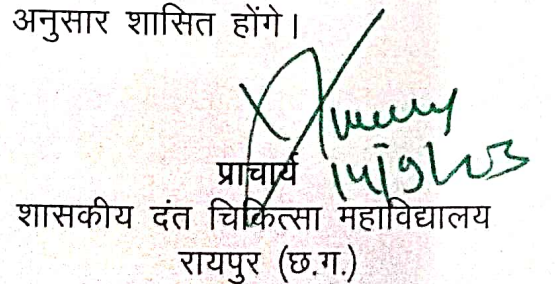 अनुसार शासित होंगे।
प्राचार्य
शासकीय दंत चिकित्सा महाविद्यालय
रायपुर (छ.ग.)